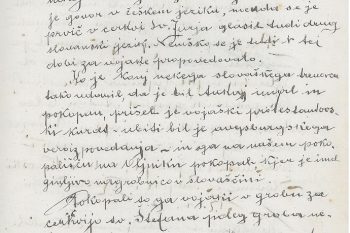 je govor v češkem jeziku, menda se je
prvič v cerkvi Sv. Jurja glasil tudi drug
slovanski jezik. Nemško se je tudi v tej
dobi za vojake propovedovalo.
Ko je konj nekega slovaškega
tako udaril, da je bil takoj umrl in
pokopan, prišel je vojaški protestantovs-
ki kurat - ubiti bil je avgsburgškega
veroizpovedanja - in ga na našem poko-
pališču na pokopali kjer je imel
ginljivo nagrobnico v slovaščini.
Pokopali so ga vojaki v grobu za
cerkvijo sv. Štefana poleg groba ne-